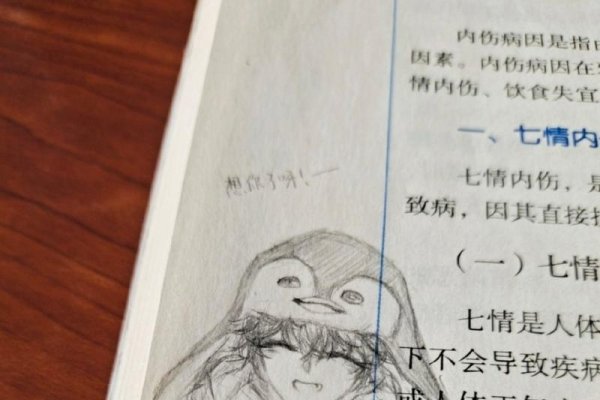 内伤病因是指
因素。内伤病因在
情内伤、饮食失宜
一、七情内
想你了呀！一
七情内伤，是
致病，因其直接
（一）七情
七情是人体
下不会导致疾病